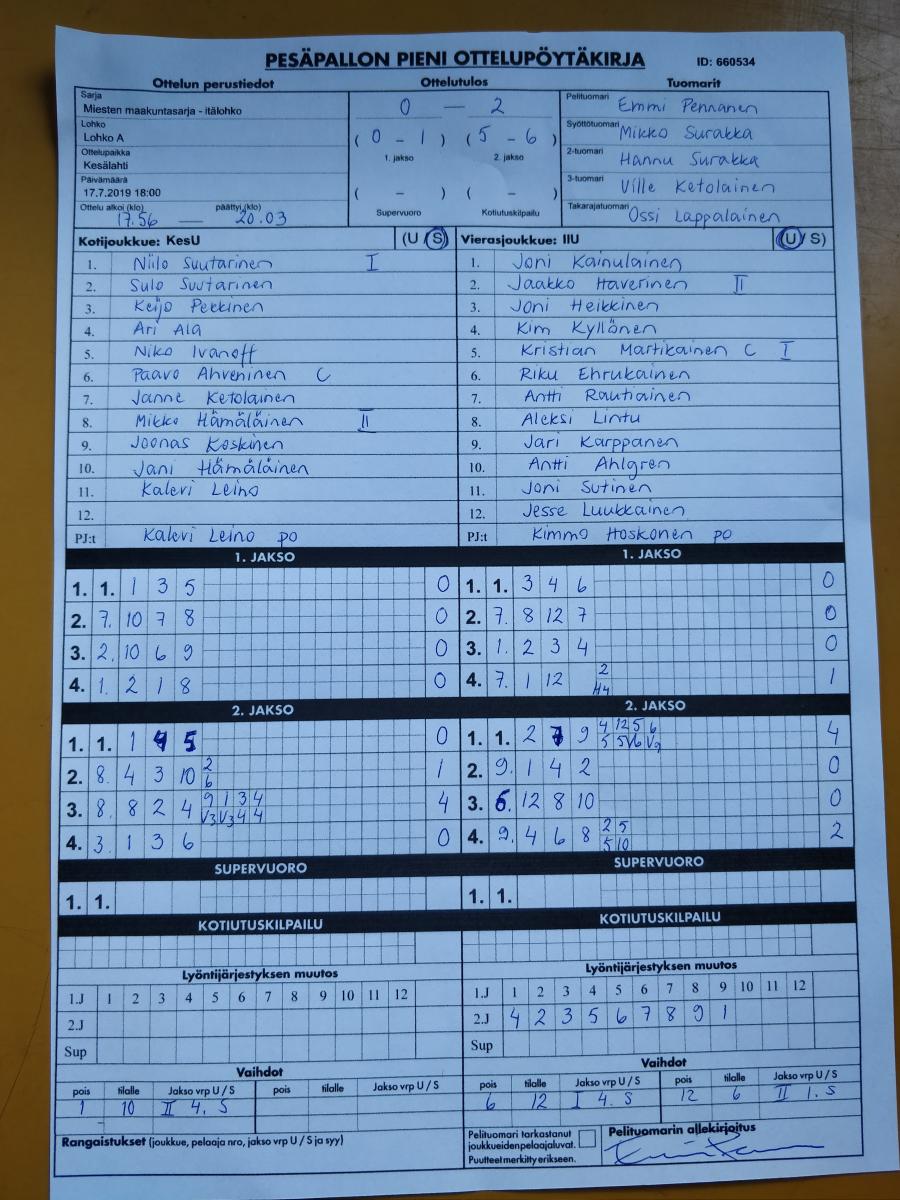 PESÄPALLON PIENI OTTELUPÖYTÄKIRJA ID: 660534
Ottelun perustiedot Ottelutulos Tuomarit
Sarja
Miesten maakuntasarja - itälohko
Lohko
Lohko A
Ottelupaikka
Kesälahti
Päivämäärä
17.7.2019 18:00
Ottelu alkoi (klo) päättyi (klo)
17.56 — 20.03
0 — 2
( 0 - 1 ) ( 5 - 6 )
1. jakso 2. jakso
( - ) ( - )
Supervuoro Kotiutuskilpailu
Pelituomari Emmi Pennanen
Syöttötuomari Mikko Surakka
2-tuomari Hannu Surakka
3-tuomari Ville Ketolainen
Takarajatuomari Ossi Lappalainen
Kotijoukkue: KesU (U / S)
1. Niilo Suutarinen I
2. Sulo Suutarinen
3. Keijo Pekkinen
4. Ari Ala
5. Niko Ivanoff
6. Paavo Ahveninen C
7. Janne Ketolainen
8. Mikko Hämäläinen II
9. Joonas Koskinen
10. Jani Hämäläinen
11. Kalevi Leino
12.
PJ:t Kalevi Leino po
Vierasjoukkue: IIU (U / S)
1. Joni Kainulainen
2. Jaakko Haverinen II
3. Joni Heikkinen
4. Kim Kyllönen
5. Kristian Martikainen C I
6. Riku Ehrukainen
7. Antti Rautiainen
8. Aleksi Lintu
9. Jari Karppanen
10. Antti Ahlgren
11. Joni Sutinen
12. Jesse Luukkainen
PJ:t Kimmo Hoskonen po
1. JAKSO 1. JAKSO
1. 1. 1 3 5 0 1. 1. 3 4 6 0
2. 7. 10 7 8 0 2. 7. 8 12 7 0
3. 2. 10 6 9 0 3. 1. 2 3 4 0
4. 1. 2 1 8 0 4. 7. 1 12 2 H4 1
2. JAKSO 2. JAKSO
1. 1. 1 4 5 0 1. 1. 2 7 9 4 12 5 6 5 5 V6 V9 4
2. 8. 4 3 10 2 6 1 2. 9. 1 4 2 0
3. 8. 8 2 4 9 1 3 4 V3 V3 4 4 4 3. 6. 12 8 10 0
4. 3. 1 3 6 0 4. 9. 4 6 8 2 5 5 10 2
SUPERVUORO SUPERVUORO
1. 1. 1. 1.
KOTIUTUSKILPAILU KOTIUTUSKILPAILU
Lyöntijärjestyksen muutos Lyöntijärjestyksen muutos
1.J 1 2 3 4 5 6 7 8 9 10 11 12 1.J 1 2 3 4 5 6 7 8 9 10 11 12
2.J 2.J 4 2 3 5 6 7 8 9 1
Sup Sup
Vaihdot Vaihdot
pois tilalle Jakso vrp U / S pois tilalle Jakso vrp U / S pois tilalle Jakso vrp U / S pois tilalle Jakso vrp U / S
1 10 II 4. S 6 12 I 4. S 12 6 II 1. S
Rangaistukset (joukkue, pelaaja nro, jakso vrp U / S ja syy)
Pelituomari tarkastanut
joukkueidenpelaajaluvat.
Puutteet merkitty erikseen.
Pelituomarin allekirjoitus